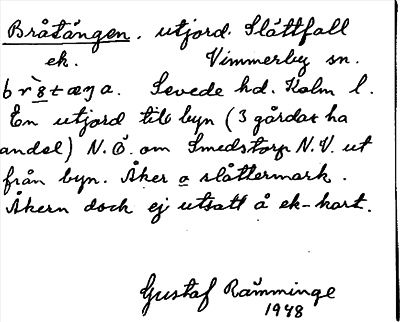 Bråtängen. utjord. Slåttfall
ek. Vimmerby sn.
Sevede hd. Kalm l.
En utjord till byn (3 gårdar ha
andel) N.Ö. om Smedstorp N.V. ut
från byn. Åker o slåttermark.
Åkern dock ej utsatt å ek-kart.
Gustaf Ramminge
1948